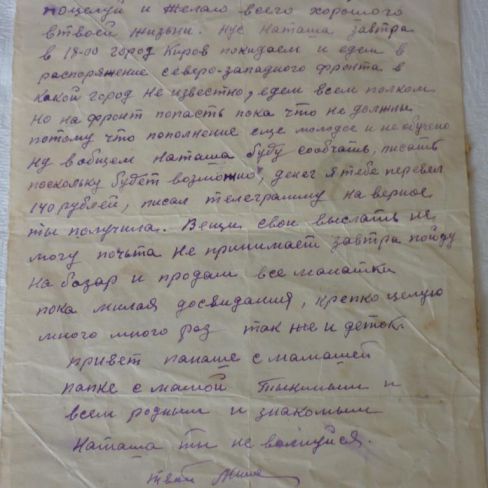 поцелуй и желаю всего хорошого
в твоей жизни. Нус Наташа завтра
в 18-00 город Киров покидаем и едем в
распоряжение северо-западного фронта в
какой город не известно, едем всем полком
Но на фронт попасть пока что не должны
потому что пополнение еще молодое и не обучено
Ну вобщем Наташа буду сообчать, писать
поскольку будет возможно, денег я тебе перевел
140 рублей, писал телеграмму на верное
ты получила. Вещи свои выслать не
могу почьта не принимает завтра пойду
на базар и продам все манатки
пока милая досвидания, крепко целую
много много раз так же и деток.
привет папаше с мамашей
папке с мамой и
всем родным и знакомым
Наташа ты не волнуйся.
твой Миша